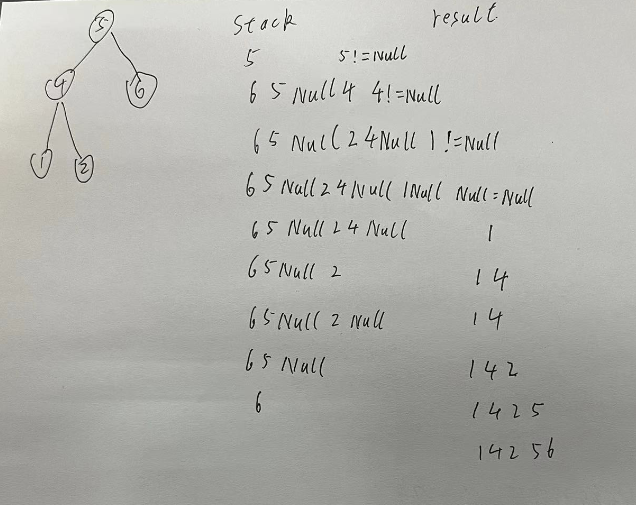 5
4 6
1 2
Stack result
5 5!=Null
6 5 Null 4 4!=Null
6 5 Null 2 4 Null 1 !=Null
6 5 Null 2 4 Null 1 Null Null=Null
6 5 Null 2 4 Null 1
6 5 Null 2 1 4
6 5 Null 2 Null 1 4
6 5 Null 1 4 2
6 1 4 2 5
1 4 2 5 6